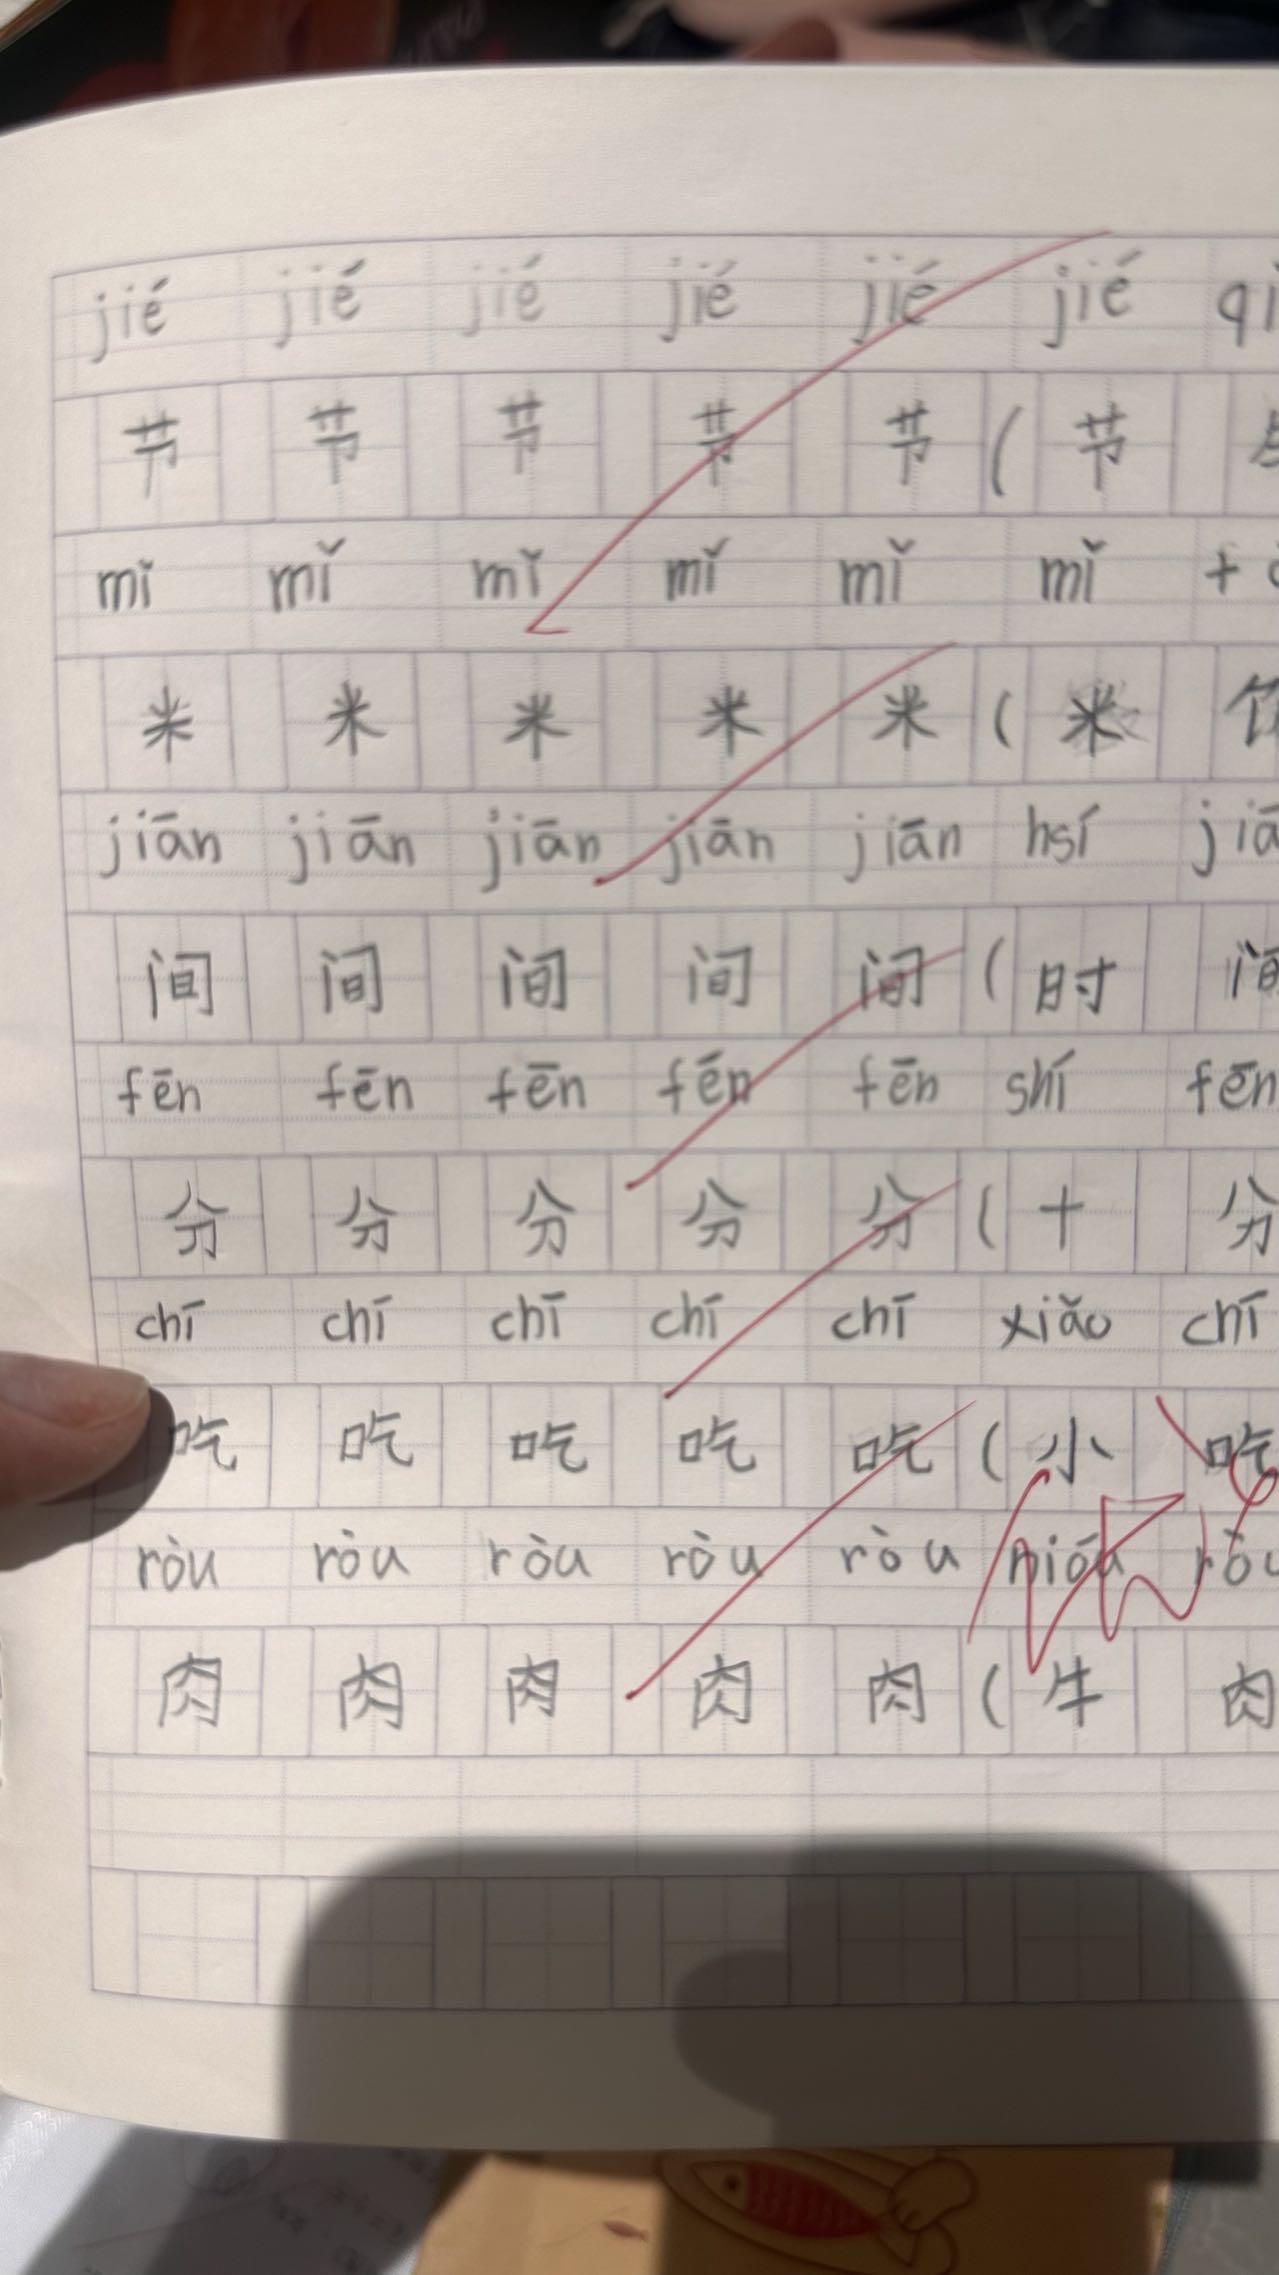 jié jié jié jié jié jié qì
节 节 节 节 节 ( 节
mǐ mǐ mǐ mǐ mǐ mǐ +
米 米 米 米 米 ( 米
jiān jiān jiān jiān jiān hsí jiā
间 间 间 间 间 ( 时 间
fēn fēn fēn fēn fēn shí fēn
分 分 分 分 分 ( 十 分
chī chī chī chī chī xiǎo chī
吃 吃 吃 吃 吃 ( 小 吃
ròu ròu ròu ròu ròu ròu
肉 肉 肉 肉 肉 ( 牛 肉